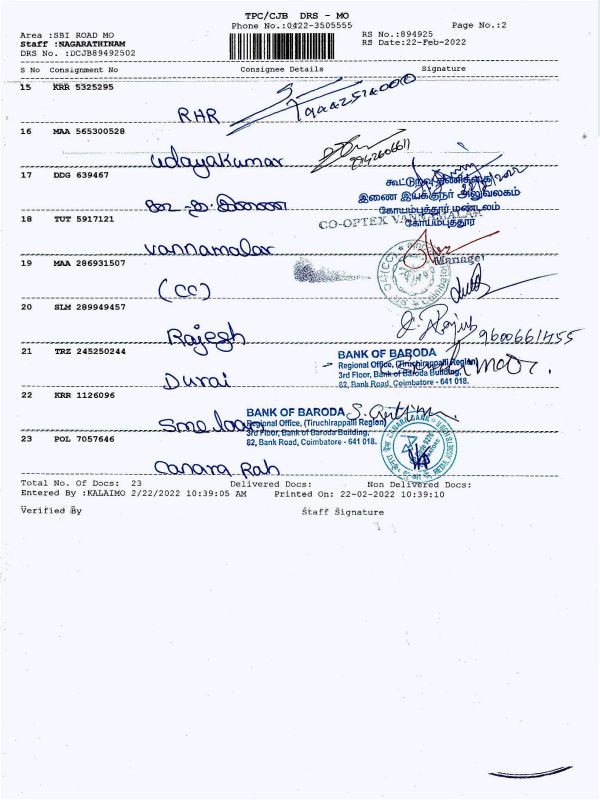 TPC/CJB DRS - MO
Phone No.:0422-3505555
Page No.:2
Area :SBI ROAD MO
RS No.:894925
Staff :NAGARATHINAM
RS Date:22-Feb-2022
DRS No. :DCJB89492502
S No Consignment No Consignee Details Signature
15 KRR 5325295
RHR
16 MAA 565300528
Udayakumar
17 DDG 639467
இணை இயக்குநர் அலுவலகம்
கோயம்புத்தூர் மண்டலம்
கோயம்புத்தூர்
18 TUT 5917121
CO-OPTEX VANNAMALAR
Vannamalar
Manager
19 MAA 286931507
(CC)
20 SLM 289949457
Rajesh
9600661455
21 TRZ 245250244
BANK OF BARODA
Regional Office, (Tiruchirappalli Region)
3rd Floor, Bank of Baroda Building,
82, Bank Road, Coimbatore - 641 018.
Durai
22 KRR 1126096
BANK OF BARODA
Regional Office, (Tiruchirappalli Region)
3rd Floor, Bank of Baroda Building,
82, Bank Road, Coimbatore - 641 018.
Sme loan
23 POL 7057646
Canara Rah
Total No. Of Docs: 23 Delivered Docs: Non Delivered Docs:
Entered By :KALAIMO 2/22/2022 10:39:05 AM Printed On: 22-02-2022 10:39:10
Verified By Staff Signature